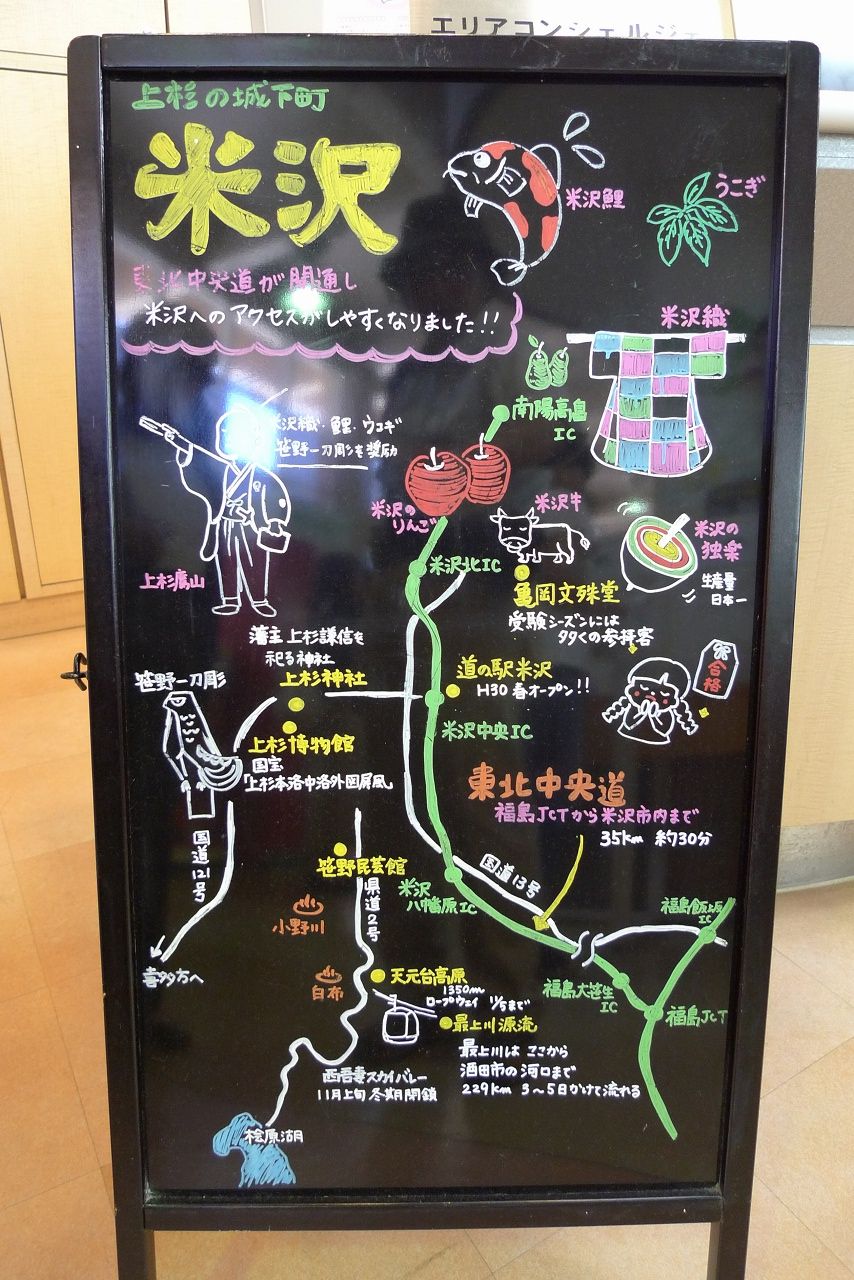 エリアコンシェルジェ
上杉の城下町
米沢
米沢鯉
うこぎ
東北中央道が開通し
米沢へのアクセスがしやすくなりました!!
米沢織
南陽高畠
IC
米沢織・鯉・ウコギ
笹野一刀彫を奨励
上杉鷹山
米沢の
りんご
米沢牛
米沢の
独楽
生産量
日本一
米沢北IC
亀岡文殊堂
受験シーズンには
多くの参拝客
合格
藩主上杉謙信を
祀る神社
上杉神社
道の駅米沢
H30春オープン!!
笹野一刀彫
上杉博物館
国宝
「上杉本洛中洛外図屏風」
米沢中央IC
東北中央道
福島JCTから米沢市内まで
35km 約30分
国道121号
笹野民芸館
県道2号
小野川
米沢
八幡原IC
国道13号
福島飯坂
IC
喜多方へ
白布
天元台高原
1350m
ロープウェイ 11/5まで
最上川源流
福島大笹生
IC
福島JCT
最上川はここから
酒田市の河口まで
229km 3~5日かけて流れる
西吾妻スカイバレー
11月上旬冬期閉鎖
桧原湖